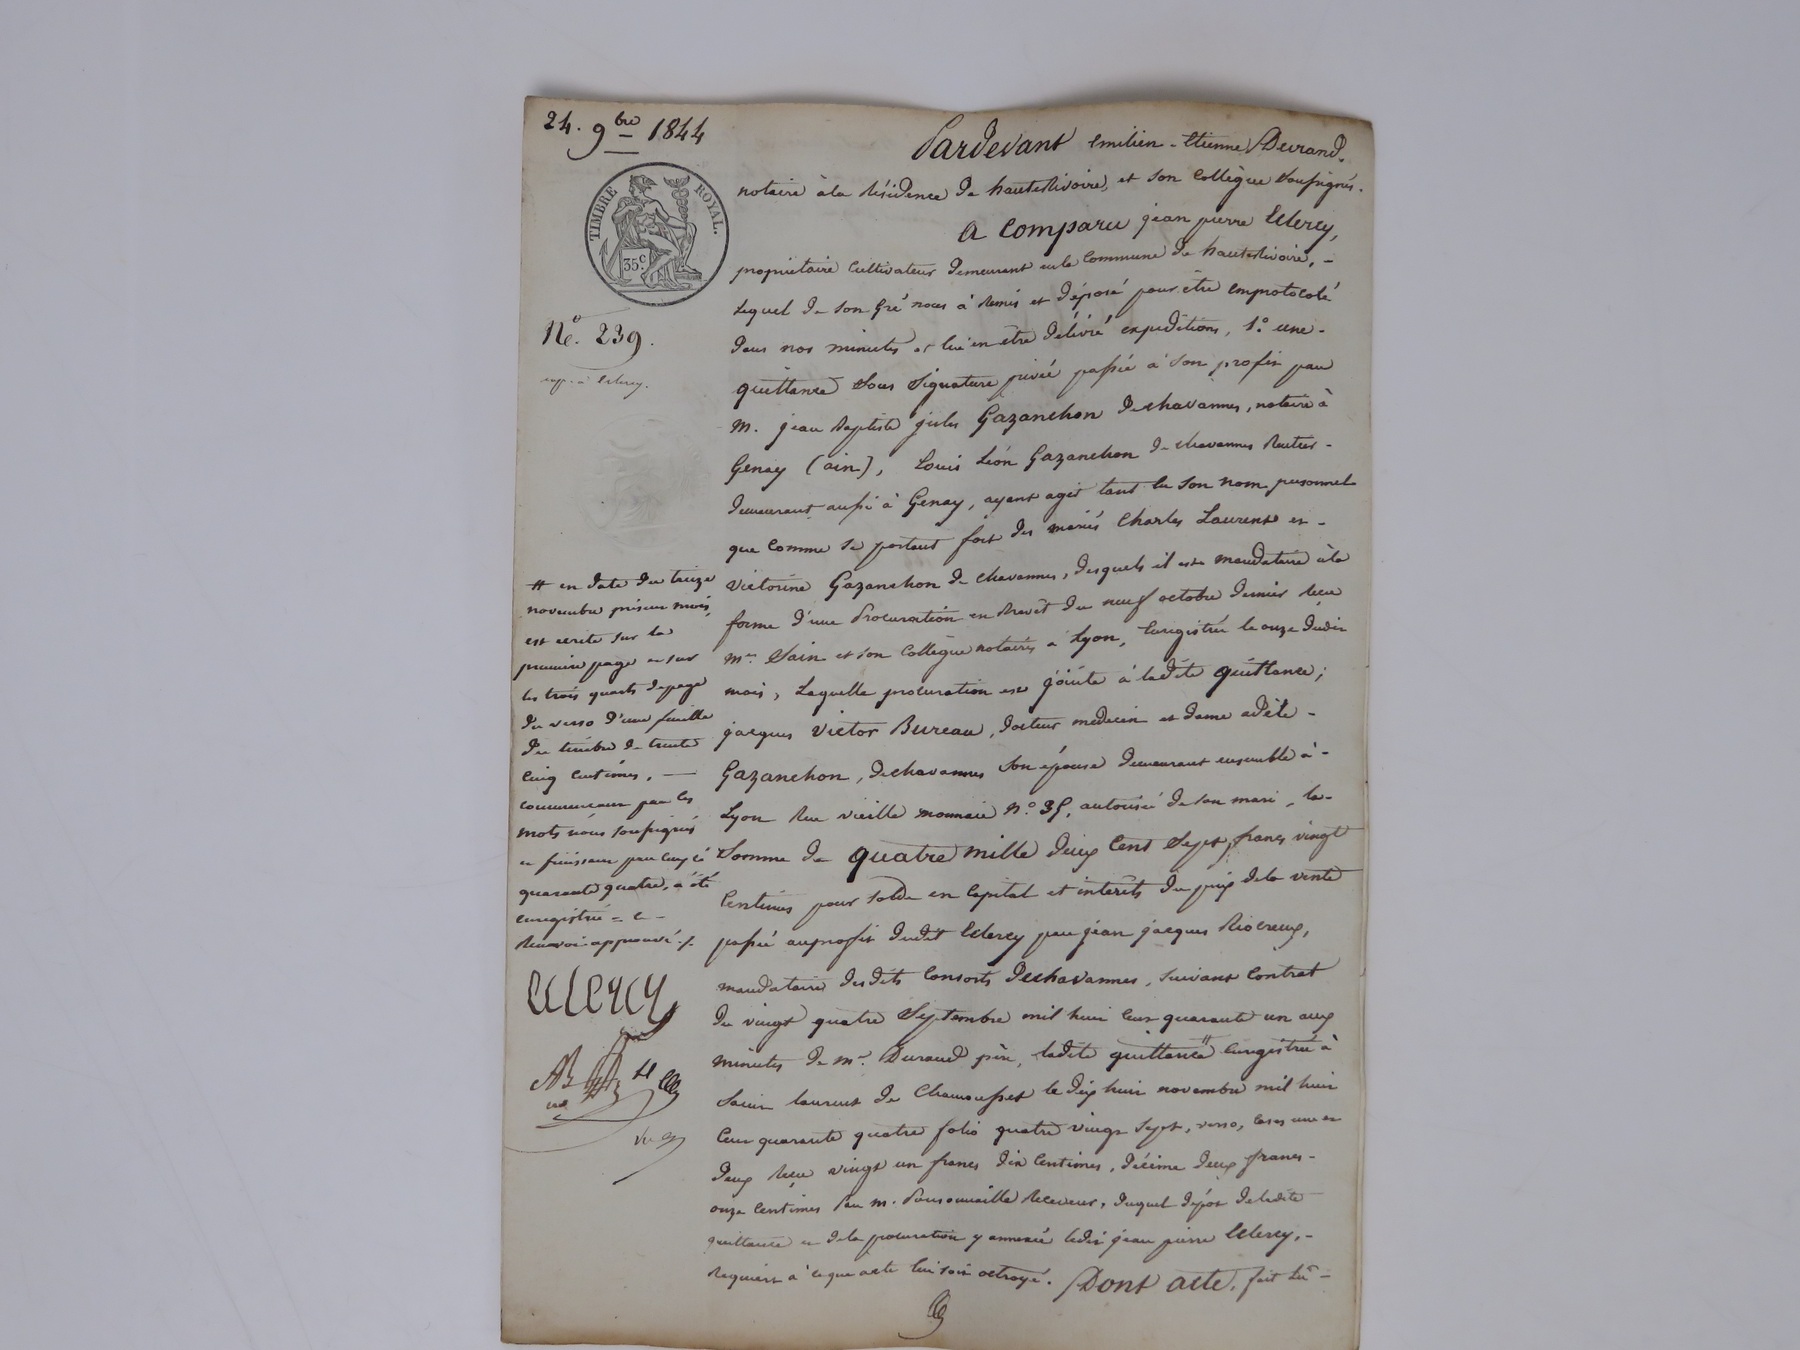 24. 9bre 1844
TIMBRE ROYAL.
35c.
No. 239.
exp. à Leclercq.
Pardevant Emilien-Etienne Durand.
notaire à la Résidence de hauterivoire, et son Collègue Soussignés.
A Comparu jean pierre
propriétaire Cultivateur demeurant en la Commune de hauterivoire, -
Lequel de son Gré nous à Remis et déposé pour être emprotocolé
dans nos minutes et lui en être délivré expéditions, 1.o une -
quittance Sous Signature privée passée à Son profit par
M. jean Baptiste jules Gazanchon Dechavannes, notaire à
Genay (ain), Louis Léon Gazanchon De chavannes Rentier -
demeurant aussi à Genay, ayant agit tant en Son nom personnel
que Comme Se portant fort des mariés Charles Laurent et -
Victorine Gazanchon de chavannes, desquels il est mandataire à la
forme d'une Procuration en Brevêt du neuf octobre dernier Reçu
Me. Sain et son Collègue notaires à Lyon, Enregistrée le onze dudit
mois, Laquelle procuration est jointe à ladite quittance;
jacques Victor Bureau, docteur médecin et dame adèle -
Gazanchon, dechavannes Son épouse demeurant ensemble à -
Lyon Rue vieille monnaie No. 35, autorisée de son mari, la -
Somme de quatre mille deux Cent Sept francs vingt
Centimes pour Solde en Capital et intérêts du prix de la vente
passée au profit dudit par jean jacques Riocreux,
mandataire desdits Consorts Dechavannes, suivant Contrat
du vingt quatre Septembre mil huit Cent quarante un aux
minutes de Me. Durand père, ladite quittance # Enregistrée à
Saint Laurent de Chamousset le dix huit novembre mil huit
Cent quarante quatre folio quatre vingt Sept, verso, Cases une et
deux Reçu vingt un francs dix Centimes, décime deux francs -
onze Centimes Par M. Receveur, duquel dépôt de ladite
quittance et de la procuration y annexée ledit jean pierre
Requiert à ce que acte lui soit octroyé. Dont acte, fait Lû -
# en date du treize
novembre présent mois,
est écrite sur la
première page et sur
les trois quarts de page
du verso d'une feuille
du timbre de trente
cinq centimes, -
commençant par les
mots nous soussignés
et finissant par ceux ci
quarante quatre, à été
enregistrée = e -
Renvoi approuvé ./.